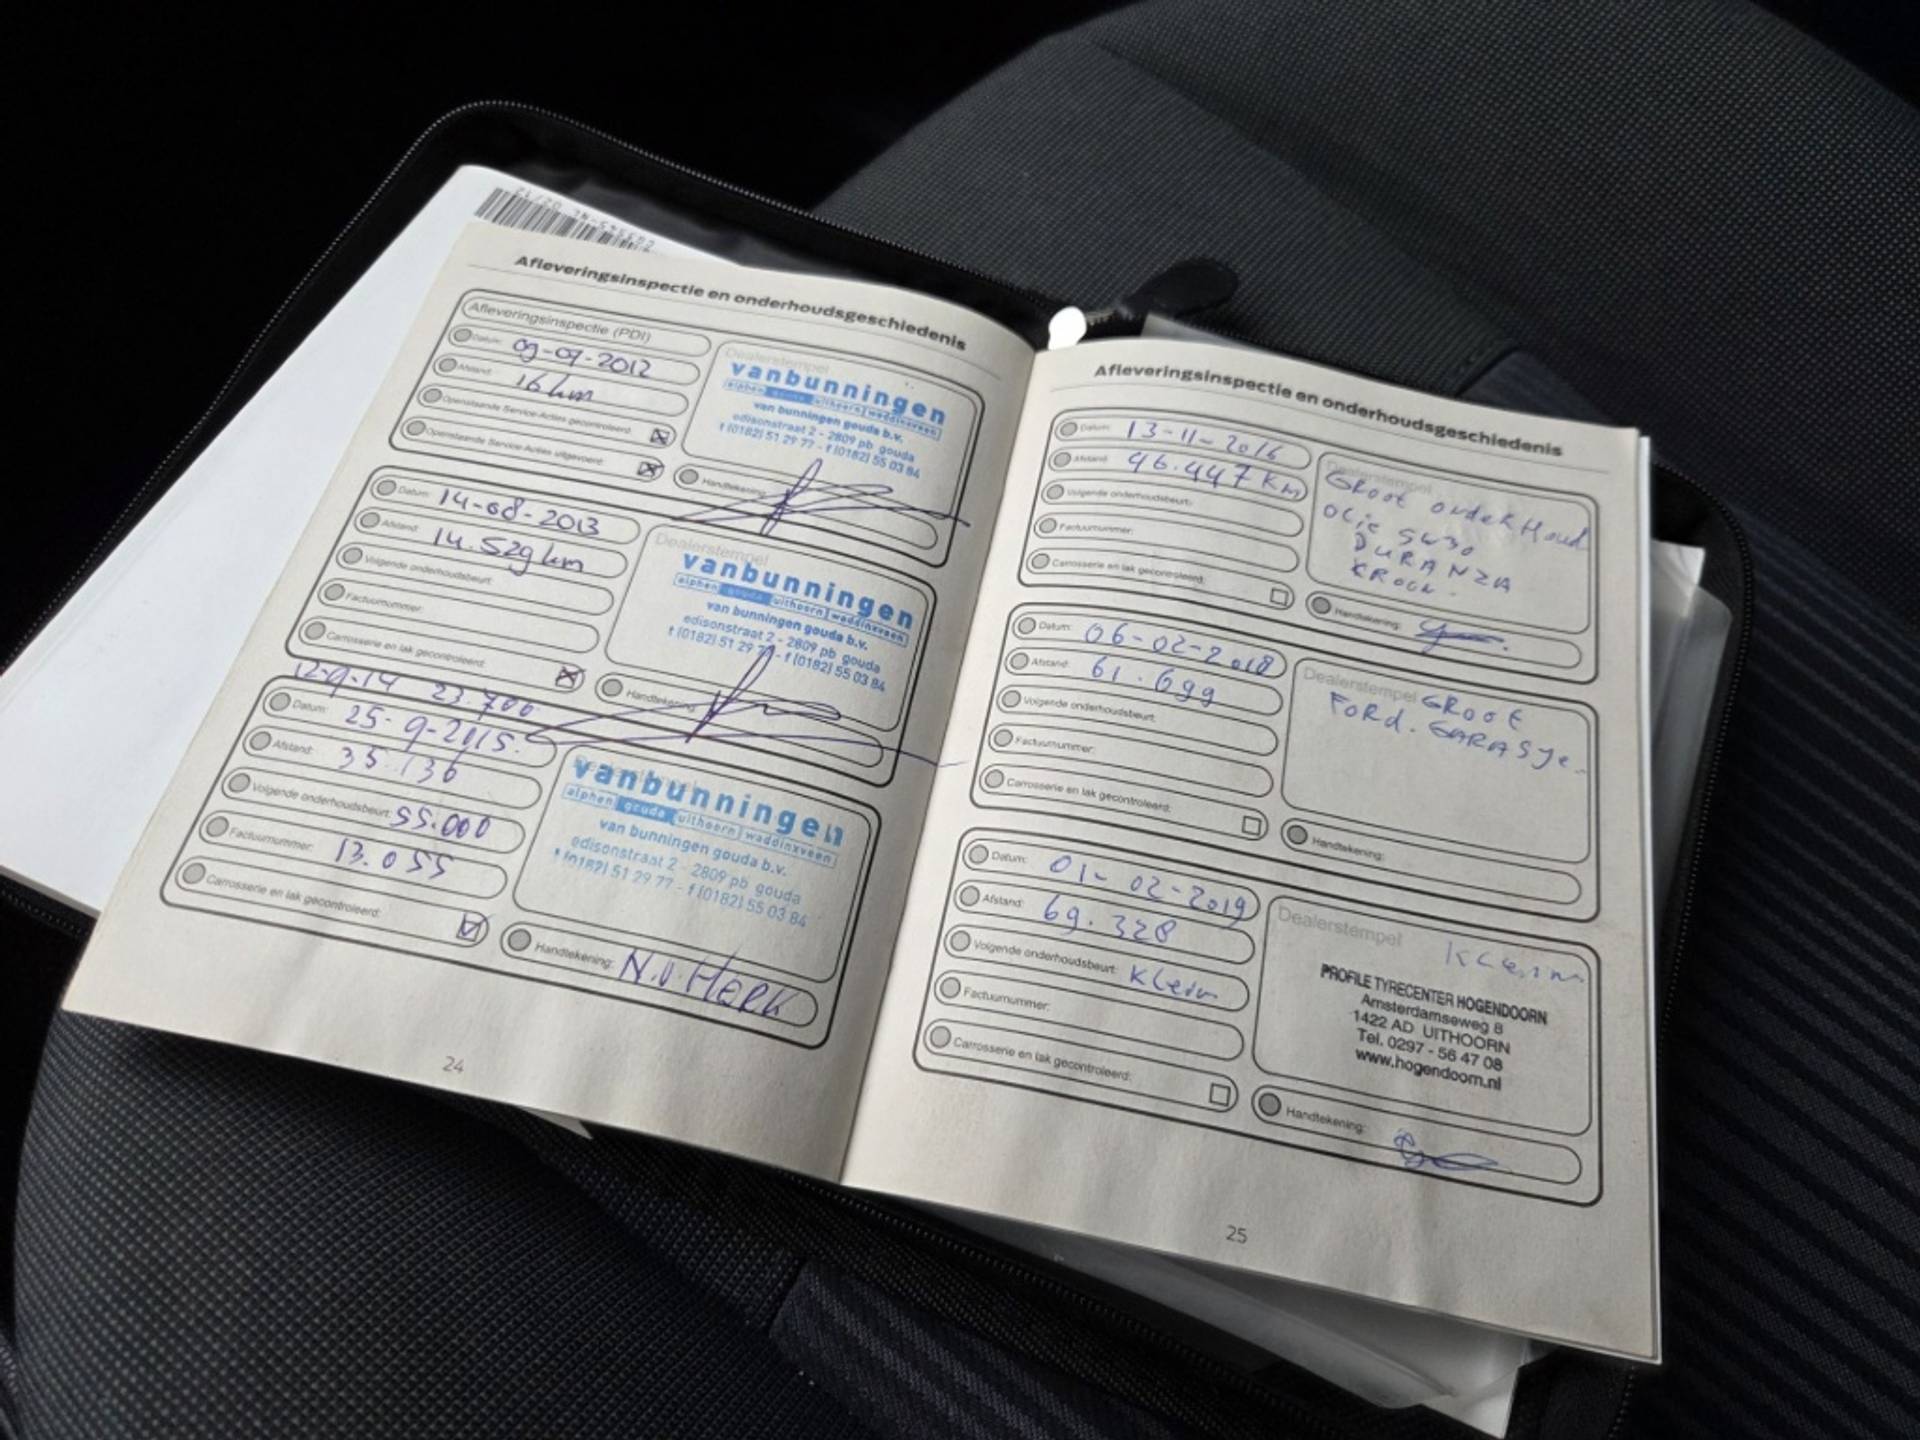 Afleveringsinspectie en onderhoudsgeschiedenis
Afleveringsinspectie (PDI)
Datum: 09-07-2012
Afstand: 16 km
Openstaande Service-Acties gecontroleerd:
Openstaande Service-Acties uitgevoerd:
Dealerstempel
vanbunningen
alphen gouda uithoorn waddinxveen
van bunningen gouda b.v.
edisonstraat 2 - 2809 pb gouda
t (0182) 51 29 77 - f (0182) 55 03 84
Handtekening:
Datum: 14-08-2013
Afstand: 14.529 km
Volgende onderhoudsbeurt:
Factuurnummer:
Carrosserie en lak gecontroleerd:
Dealerstempel
vanbunningen
alphen gouda uithoorn waddinxveen
van bunningen gouda b.v.
edisonstraat 2 - 2809 pb gouda
t (0182) 51 29 77 - f (0182) 55 03 84
Handtekening:
12-9-14 23.700
Datum: 25-9-2015.
Afstand: 35.136
Volgende onderhoudsbeurt: 55.000
Factuurnummer: 13.055
Carrosserie en lak gecontroleerd:
vanbunningen
alphen gouda uithoorn waddinxveen
van bunningen gouda b.v.
edisonstraat 2 - 2809 pb gouda
t (0182) 51 29 77 - f (0182) 55 03 84
Handtekening: N.v. Herk
24
Afleveringsinspectie en onderhoudsgeschiedenis
Datum: 13-11-2016
Afstand: 46.447 km
Volgende onderhoudsbeurt:
Factuurnummer:
Carrosserie en lak gecontroleerd:
Dealerstempel
GROOT onderHoud
OLie 5W30
DURANZA
KROON.
Handtekening:
Datum: 06-02-2018
Afstand: 61.699
Volgende onderhoudsbeurt:
Factuurnummer:
Carrosserie en lak gecontroleerd:
Dealerstempel GROOT
FORd. GARASJe.
Handtekening:
Datum: 01-02-2019
Afstand: 69.328
Volgende onderhoudsbeurt: KLein
Factuurnummer:
Carrosserie en lak gecontroleerd:
Dealerstempel
KLein
PROFILE TYRECENTER HOGENDOORN
Amsterdamseweg 8
1422 AD UITHOORN
Tel. 0297 - 56 47 08
www.hogendoorn.nl
Handtekening:
25